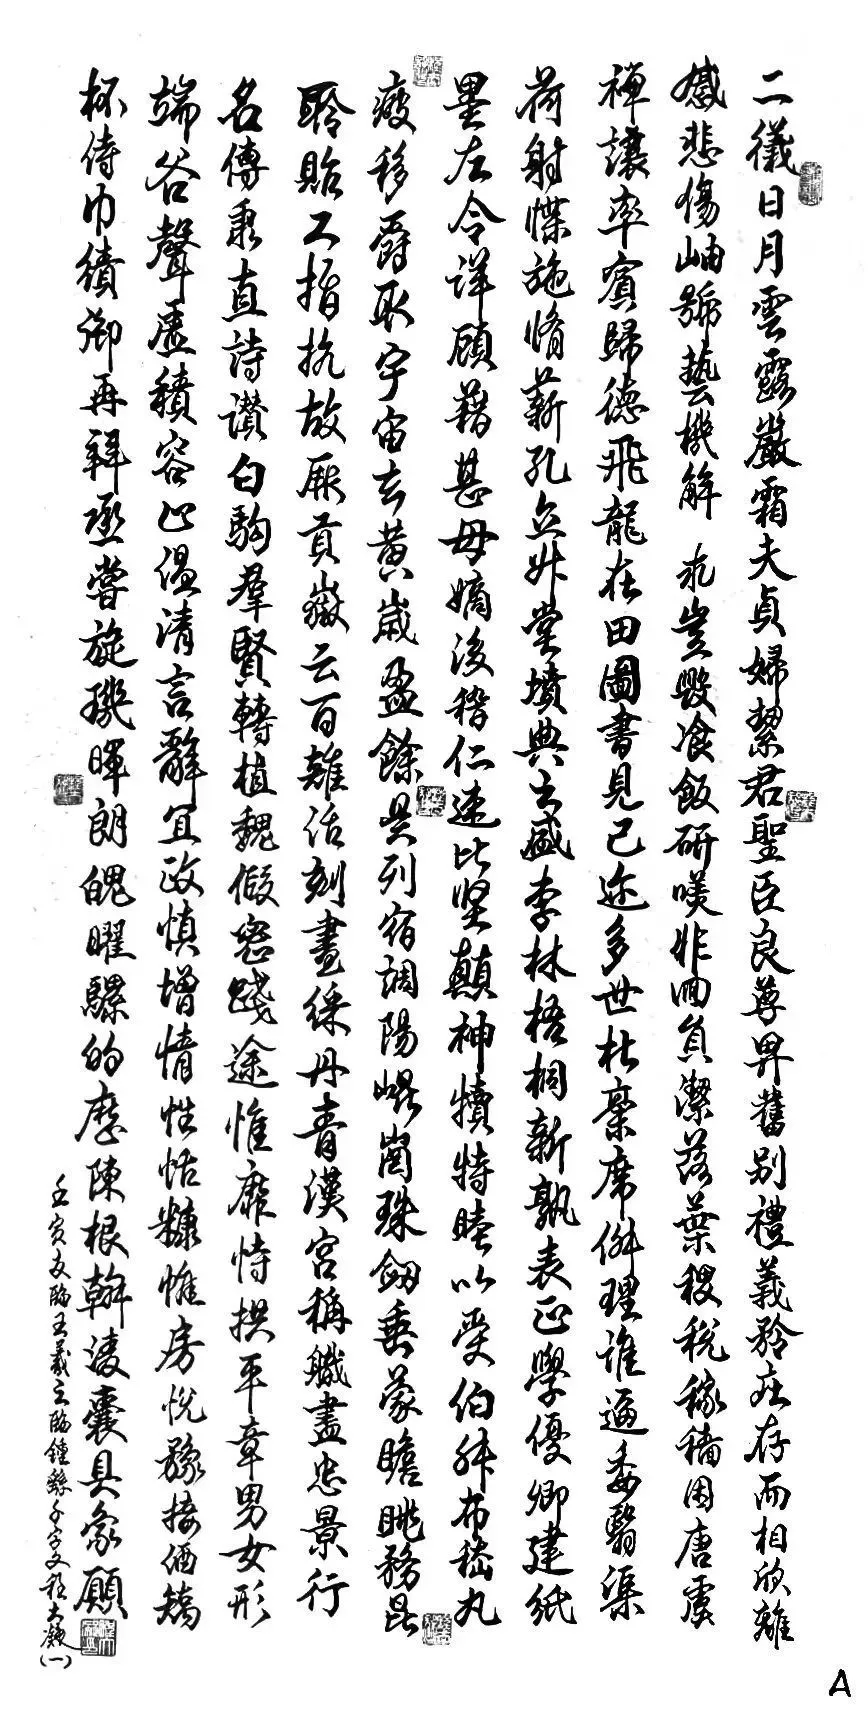 二儀日月雲露嚴霜夫貞婦絜君聖臣良尊卑舊別禮義矜莊存而相欣離
感悲傷岫號藝機解求豈毀飡飯研嘆非罔負潔落葉稷稅稼穡困唐虞
禪讓率賓歸德飛龍在田圖書見己迹多世杜稾席併理誰逼委翳渠
荷射惵施脩薪孔立升堂墳典之盛李林梧桐新孰表正學優卿建紙
墨左令詳顧藉甚母嫡後稽仁速比堅顛神犢特睦以受伯升布嵇丸
疲移爵取宇宙玄黃歲盈餘昃列宿調陽崐崗珠劒垂蒙瞻眺務昆
聆貽工指抗故厥貢嶽云百離活刻畫綵丹青漢宮稱職盡忠景行
名傳秉直詩讚白駒羣賢轉植魏假密踐途惟靡恃拱平章男女形
端谷聲虛積容止溫清言辭宜政慎增情性恬糠惟房悅豫接酒矯
杯侍巾績御再拜烝嘗旋璣暉朗魄曜騾的歷陳根斡淩囊具象願
壬寅夏臨王羲之臨鍾繇千字文
(一)
A